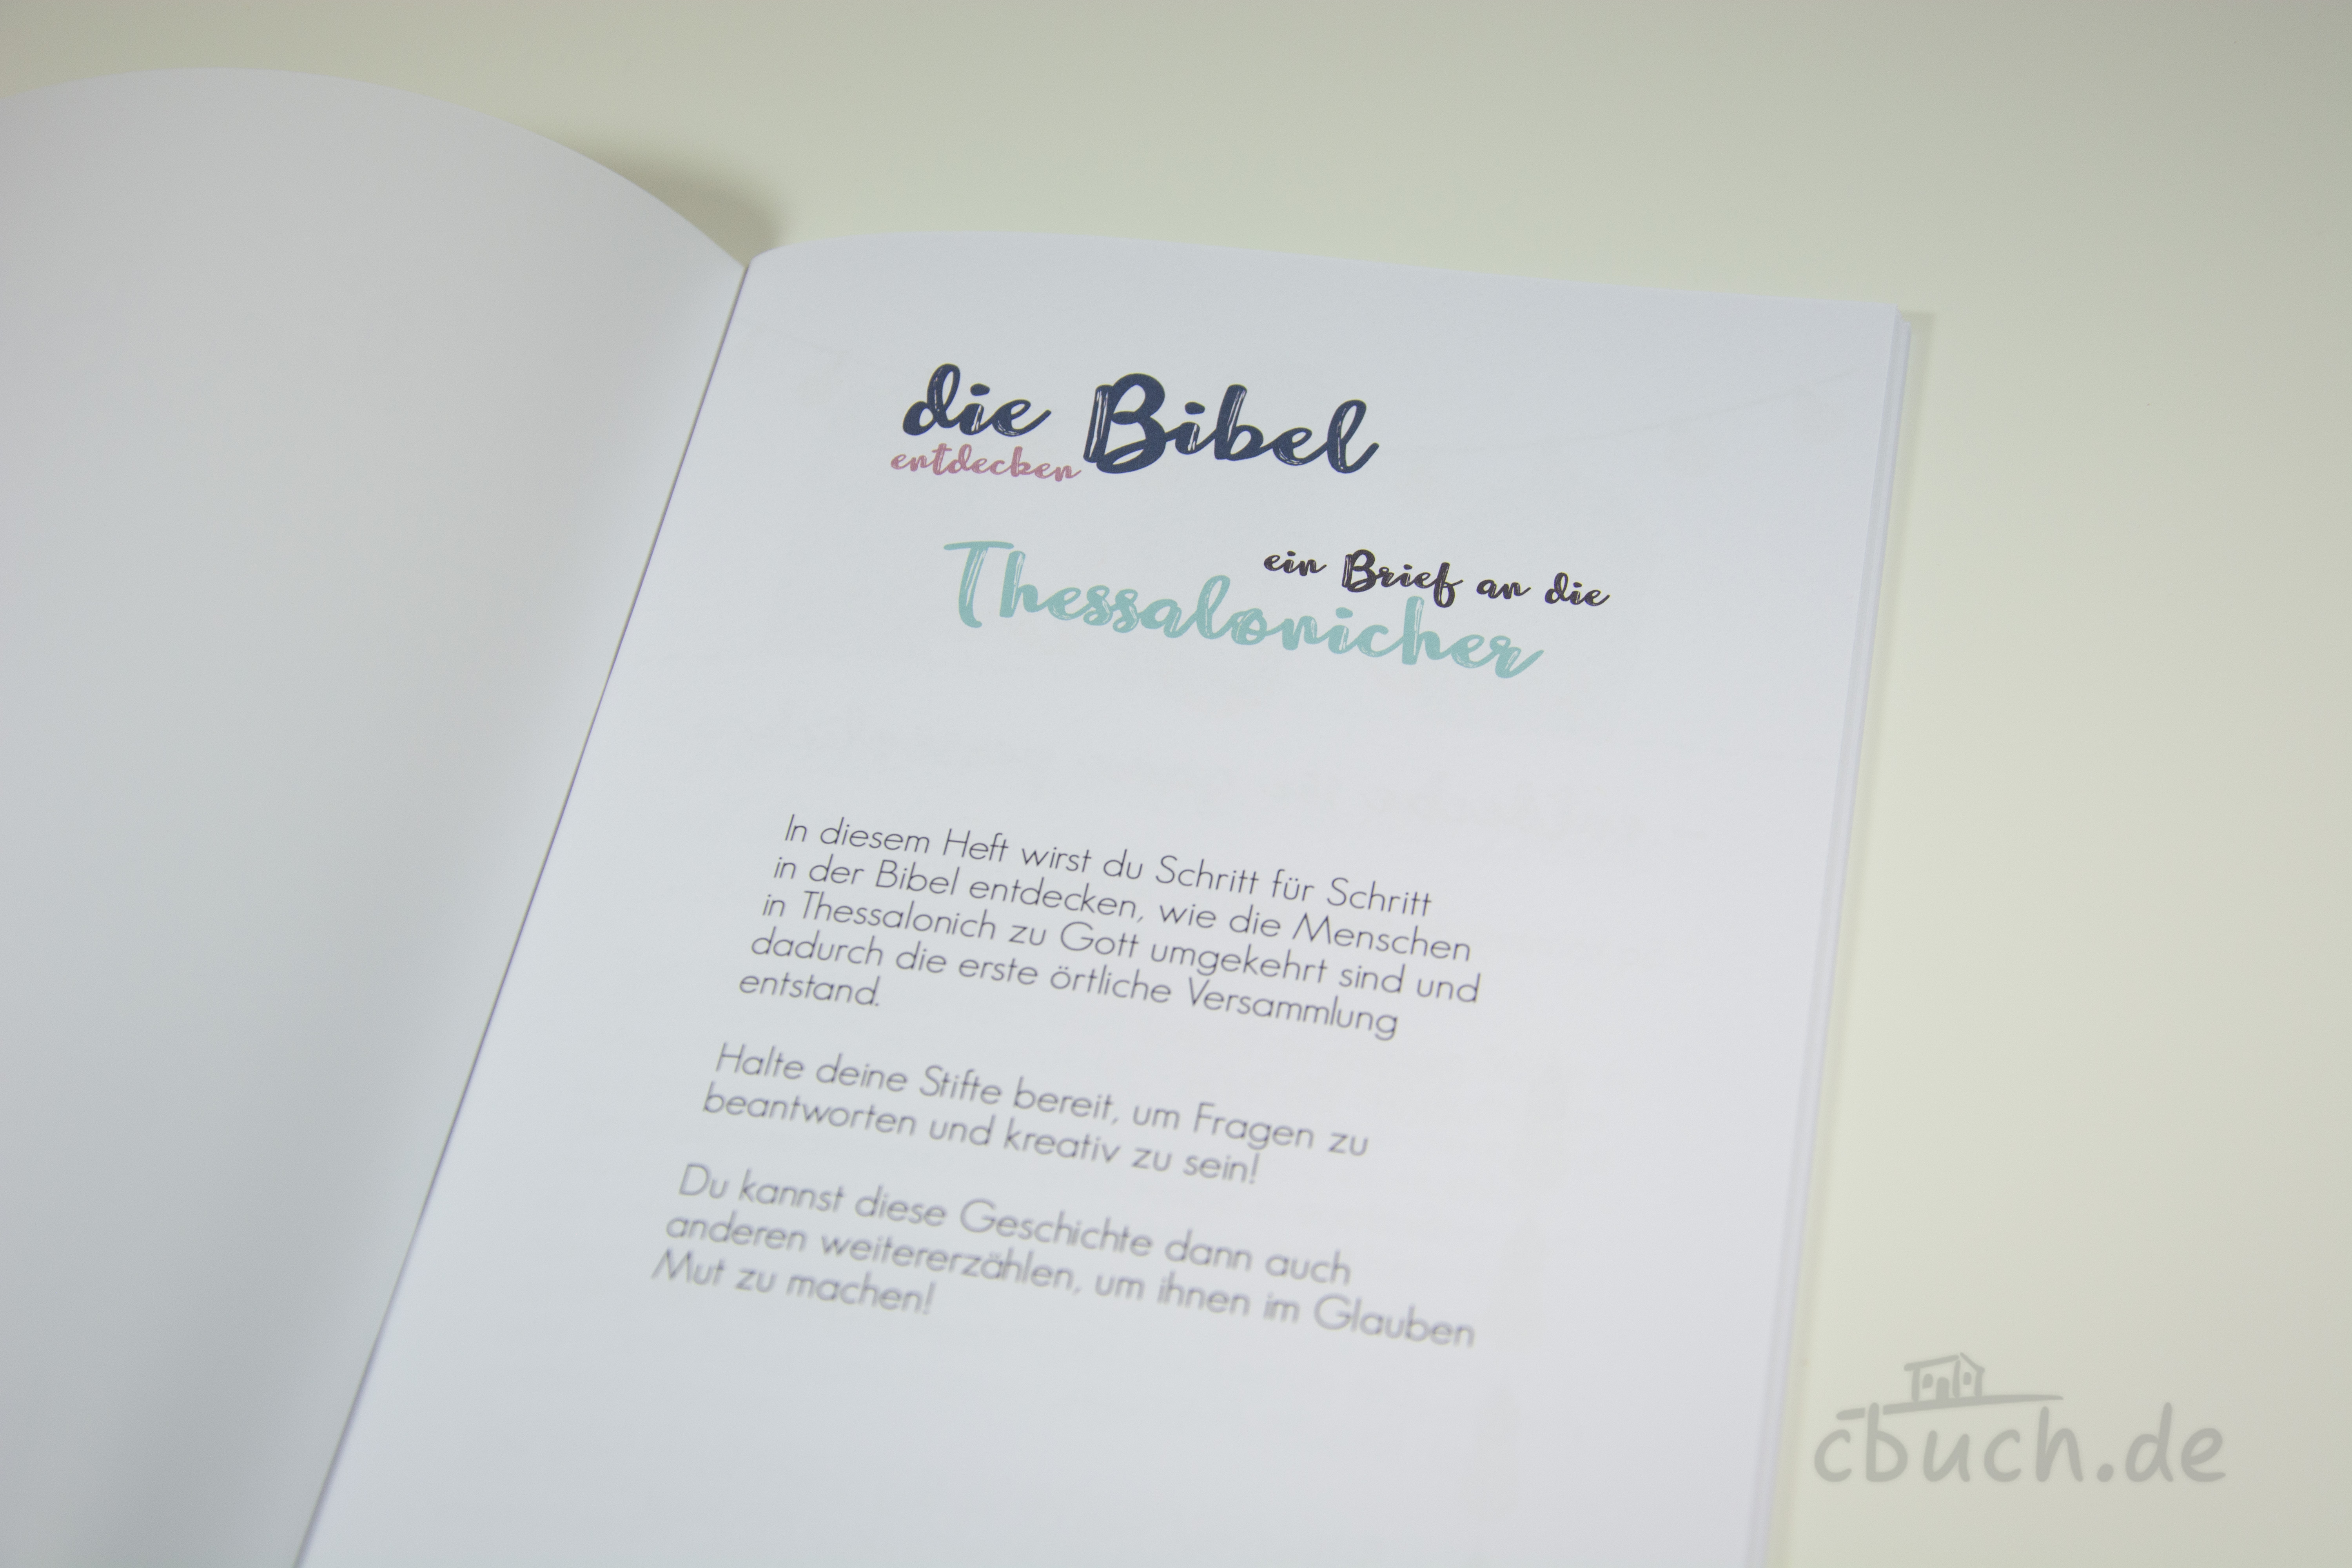 die Bibel
entdecken
ein Brief an die
Thessalonicher
In diesem Heft wirst du Schritt für Schritt
in der Bibel entdecken, wie die Menschen
in Thessalonich zu Gott umgekehrt sind und
dadurch die erste örtliche Versammlung
entstand.
Halte deine Stifte bereit, um Fragen zu
beantworten und kreativ zu sein!
Du kannst diese Geschichte dann auch
anderen weitererzählen, um ihnen im Glauben
Mut zu machen!
cbuch.de